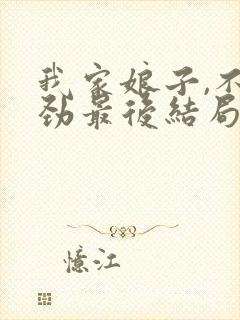 我家娘子,不
劲最後結局
憶江